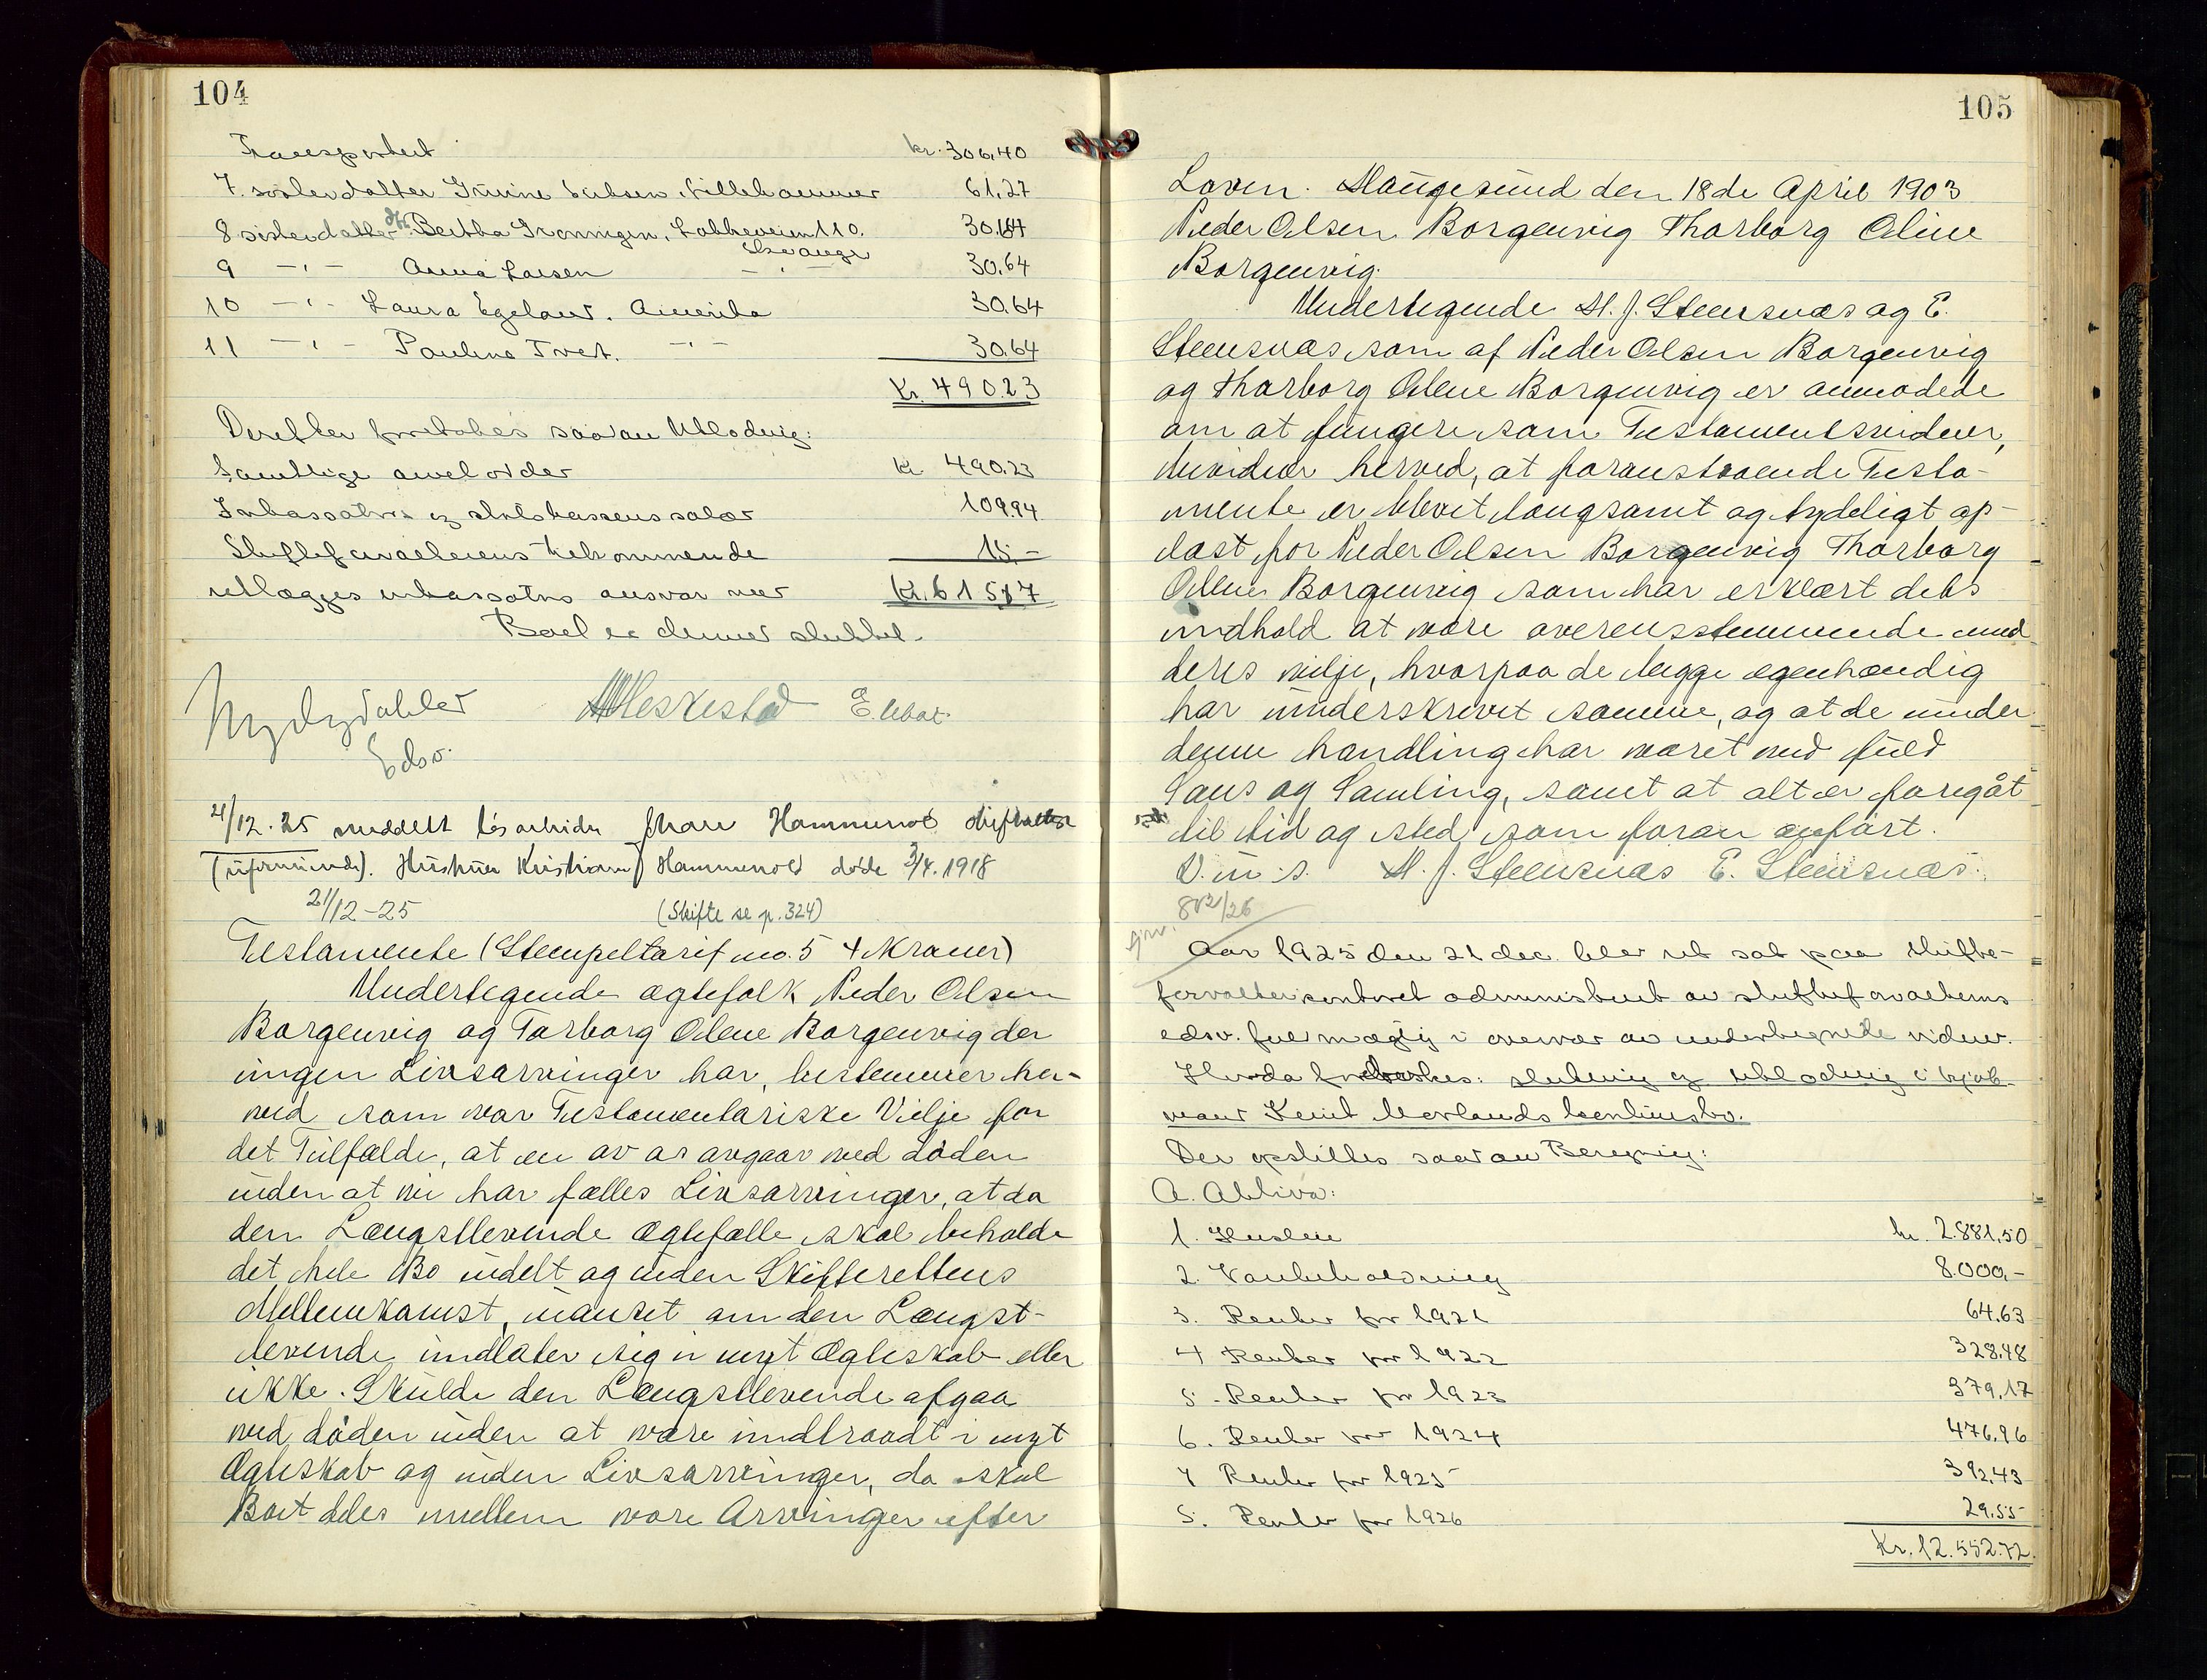 104
Transportert kr. 306,40
7. søsterdatter Lillehammer 61,27
8 søsterdatter Bertha Grønningen, 110. 30,64
Stavanger
9 -"- Anna Larsen -"- 30.64
10 -"- Laura Egeland. Amerika 30.64
11 -"- Pauline Tvert. -"- 30.64
Kr. 490.23
Derefter foretokes saadan Utlodning:
Samtlige arvelodder kr 490.23
Inkassators og statskassens salær 109.94
Skifteforvalterens tilkommende 15.-
utlægges inkassator ansvar mot Kr. 615,17
Boet er dermed sluttet.
Edsv.
21/12.25 meddelt løsarbeider Hammersol skifteattest
(uformuende). Hustruen Kristiane Hammersol døde 3/4.1918
21/12-25 (Skifte se p. 324)
Testamente (Stempeltarif no. 5 4 Kroner)
Undertegende ægtefolk Peder Olsen
Borgenvig og Torborg Oline Borgenvig der
ingen Livsarvinger har, bestemmer her-
ved som vor Testamentariske Vilje for
det Tilfælde, at en av os avgaar ved døden
uden at vi har fælles Livsarvinger, at da
den Længstlevende ægtefælle skal beholde
det hele Bo udelt og uden Skifterettens
Mellemkomst, uanset om den Længst-
levende indlater sig i nyt Ægteskab eller
ikke. Skulde den Længstlevende afgaa
ved døden uden at være indtraadt i nyt
Ægteskab og uden Livsarvinger, da skal
Boet deles mellem vore Arvinger efter
105
Loven. Haugesund den 18de April 1903
Peder Olsen Borgenvig Thorborg Oline
Borgenvig.
Undertegende M. J. Steensnæs og E.
Steensnæs som af Peder Olsen Borgenvig
og Thorborg Oline Borgenvig er anmodede
om at fungere som Testamentsvidner,
bevidner herved, at foranstaaende Testa-
mente er blevet langsomt og tydeligt op-
læst for Peder Olsen Borgenvig Thorborg
Oline Borgenvig som har erklært dets
indhold at være overensstemmende med
deres vilje, hvorpaa de begge egenhændig
har underskrevet samme, og at de under
denne handling har været ved fuld
Sans og Samling, samt at alt er foregåt
til tid og sted som foran anført.
D. u. s. M. J. Steensnæs E. Steensnæs.
Aar 1925 den 21 dec. blev ret sat paa skifte-
forvalterkontoret administrert av skifteforvalterens
edsv. fuldmægtig i overvær av undertegnede vidner.
Hvorda foretokes: slutning og utlodning i kjøb-
mand Knut Mørlands konkursbo.
Der opstilles saadan Beregning:
A. Aktiva:
1. Husleie kr. 2.881,50
2. Varebeholdning 8.000,-
3. Renter for 1921 64,63
4 Renter for 1922 328,48
5. Renter for 1923 379,17
6. Renter for 1924 476,96
7 Renter for 1925 392,43
8. Renter for 1926 29,55
Kr. 12.552.72